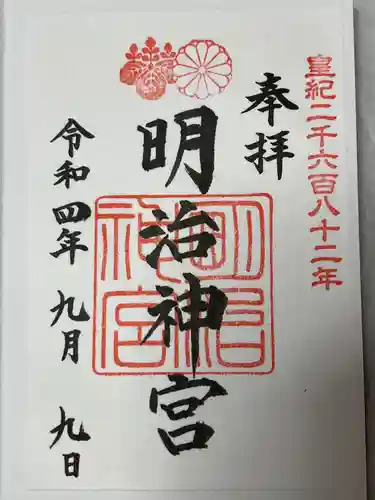 皇紀二千六百八十二年
奉拝
明治神宮
明治神宮
令和四年九月九日